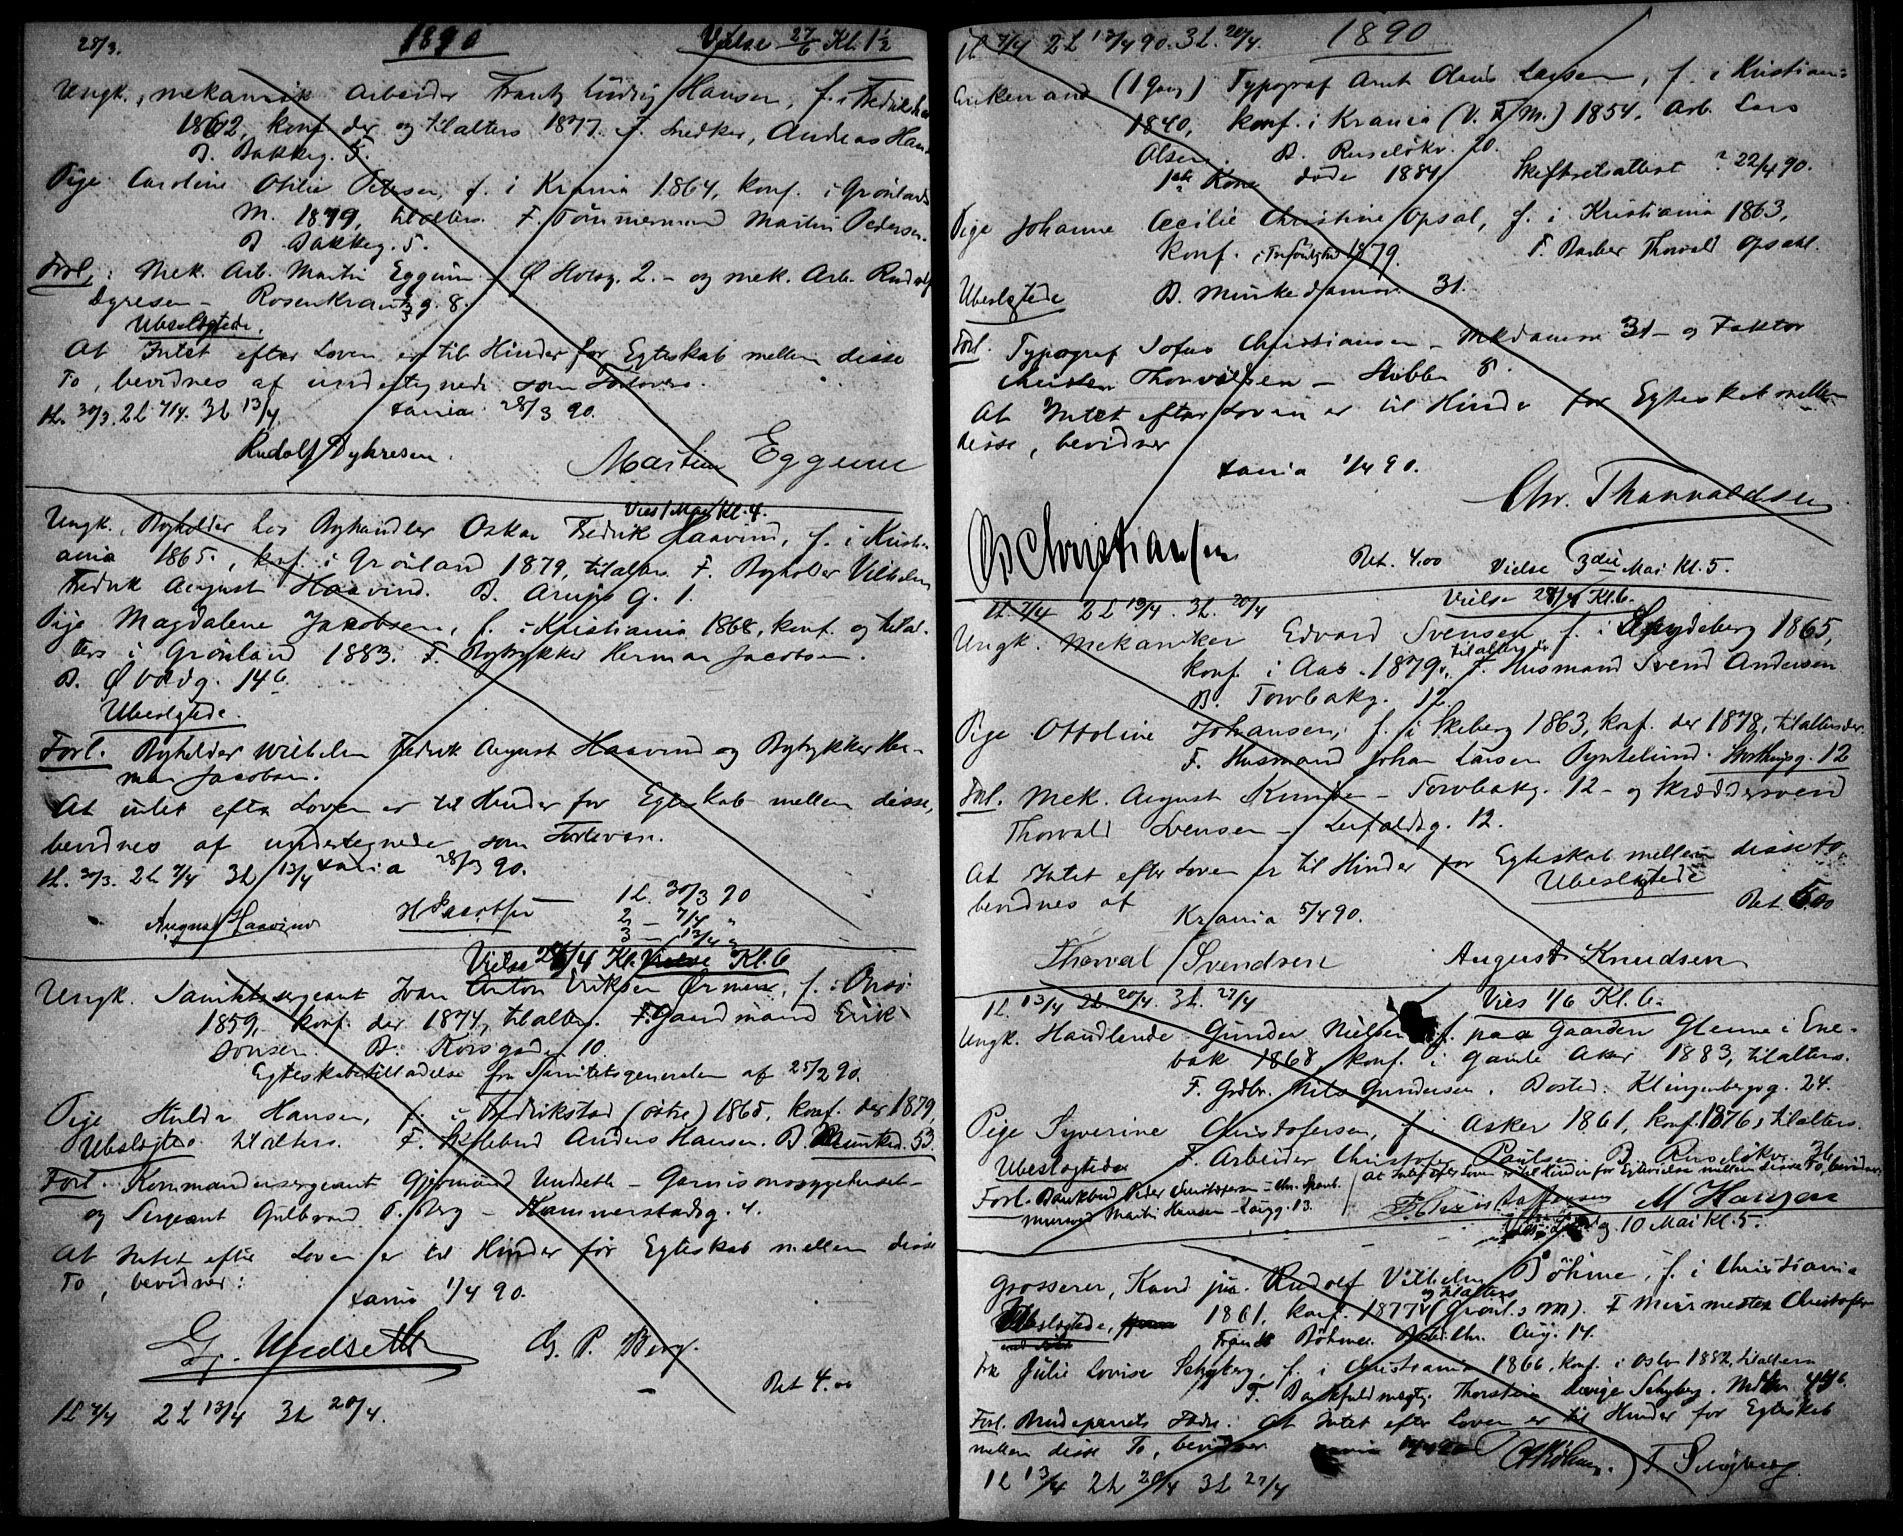 28/3. 1890 Vielse 27/6 Kl. 1½
Ungk., mekanisk Arbeider Frantz Ludvig Hansen, f. i Fredrikshald
1862, konf. der og tilalters 1877. F. Snedker, Andreas Hansen
B. Bakkeg. 5.
Pige Caroline Otilie Petersen, f. i Krania 1864, konf. i Grønlands
M. 1879, tilalters F. Tømmermand Martin Pedersen.
B. Bakkeg. 5.
Forl.: Mek. Arb. Martin Eggum Ø Holsg. 2. - og mek. Arb. Rudolf
Dyresen - Rosenkrantzg. 8.
Ubeslægtede.
At Intet efter Loven er til Hinder for Egteskab mellem disse
To, bevidnes af undertegnede som Forlovere.
1L. 30/3. 2L 7/4. 3L 13/4 xania 28/3 90.
Rudolf Dyhresen. Martin Eggum
Vies 1 Mai Kl. 4.
Ungk. Bogholder hos Boghandler Oskar Fredrik Haavind, f. i Kristi-
ania 1865, kf. i Grønland 1879, tilalters F. Bogholder Vilhelm
Fredrik August Haavind. B. Arups G. 1.
Pige Magdalene Jacobsen, f. i Kristiania 1868, konf. og tilal-
ters i Grønland 1883. F. Bogtrykker Herman Jacobsen.
B. Ø Voldg. 14b
Ubeslgtede.
Forl. Bogholder Wilhelm Fredrik August Haavind og Bogtrykker Her-
man Jacobsen.
At intet efter Loven er til Hinder for Egteskab mellem disse,
bevidnes af undertegnede som Forlovere.
1L. 30/3. 2L 7/4 3L 13/4 xania 28/3 90.
August Haavind H Jacobsen 1L. 30/3 90
2 - 7/4 "
3 - 13/4 "
Vielse 28/4 Kl. Vielse Kl. 6
Ungk. Sanitetssergeant Ivar Anton Eriksen Ørmen, f. i Onsø
1859, konf. der 1874, tilalters. F. Gaardmand Erik
Jonsen. B. Korsgaden 10.
Egteskabstilladelse fra Sanitetsgeneralen af 25/2 90.
Pige Hulda Hansen, f. i Fredrikstad (østre) 1865, konf. der 1879
Ubeslægtede tilalters. F. Anders Hansen. B. Munked. 53.
Forl. Kommandersergeant Gjermund Undseth - Garnisonssygehuset -
og Sergeant Gulbrand P. Berg - Hammerstadsg. 4.
At Intet efter Loven er til Hinder for Egteskab mellem disse
To, bevidner:
xania 1/4 90.
Gj. Undseth G. P. Berg.
Bet 4.00
1L 7/4 2L 13/4 3L 20/4.
1L 7/4 2L 13/4 90. 3L. 20/4. 1890
Enkemand (1 Gang) Typograf Arnt Olaus Larsen, f. i Kristiania
1840, konf. i Krania (V. F. M.) 1854. Arb. Lars
Olsen. B. Ruseløkv. 20.
1ste Kone døde 1884 Skifteretsattest 22/4 90.
Pige Johanne Cecilie Christine Opsal, f. i Kristiania 1863,
konf. i Trefoldighed 1879. F. Barber Thorvald Opsahl.
Ubeslgtede B. Munkedamsv. 31.
Forl. Typograf Sofus Christiansen - Mkdamsv. 31 - og Faktor
Christen Thorvaldsen - Stubben 8.
At Intet efter Loven er til Hinder for Egteskab mellem
disse, bevidner
xania 1/4 90.
Chr. Thorvaldsen
S Christiansen Bet. 4.00 Vielse 3die Mai Kl. 5.
1L. 7/4 2L 13/4. 3L. 20/4 Vielse 28/4 Kl. 6.
Ungk. Mekaniker Edvard Svensen f. i Spydeberg 1865,
konf. i Aas 1879, tilalters der F. Husmand Svend Andersen
B. Torvbakg. 12.
Pige Ottoline Johansen, f. i Skeberg 1863, konf. der 1878, tilalters der.
F. Husmand Johan Larsen Pyntelund. Storthingsg. 12
Forl. Mek. August Knudsen - Torvbakg. 12 - og Skræddersvend
Thorvald Svensen - Leirfaldsg. 12.
At Intet efter Loven er til Hinder for Egteskab mellem disse to
bevidnes af Ubeslægtede
Krania 5/4 90. Bet. 6.00
Thorval Svendsen August Knudsen
1L. 13/4 2L 20/4. 3L 27/4 Vies 1/6 Kl. 6.
Ungk. Handlende Gunder Nielsen f. paa Gaarden Glenne i Ene-
bak 1868, konf. i Gamle Aker 1883, tilalters.
F. Grdbr. Nils Gundersen. Bosted: Klingenbergsg. 24.
Pige Syverine Christofersen, f. i Asker 1861, konf. 1876, tilalters.
Ubeslægtede F. Arbeider Christofer Paulsen. B. Ruseløkv. 36
At Intet efter Loven er til Hinder for Egteskab mellem disse To, bevidner
Forl. Bankbud Peder Christofersen - Chr. Sparb.
Mursvend Martin Hansen - 13. P. Christoffersen M Hansen
Vies Lørdag 10 Mai Kl. 5.
Grosserer, Kand. jur. Rudolf Vilhelm Bøhme, f. i Christiania
Ubeslægtede, 1861, konf. 1877 og tilalters (Grønl.s M). F Murmester Christofer
Frantz Bøhme. Bosted Chr. Aug. 14.
Frk. Julie Lovise Schyberg, f. i Christiania 1866, konf. i Oslo 1882, tilalters
F. Bankfuldmægtig Thorstein Schyberg. Mdksv. 45b.
Forl. Brudeparrets Fædre. At Intet efter Loven er til Hinder for Egteskab
mellem disse To, bevidner
C F Bøhme. T. Schyberg.
1L 13/4 2L 20/4 3L 27/4